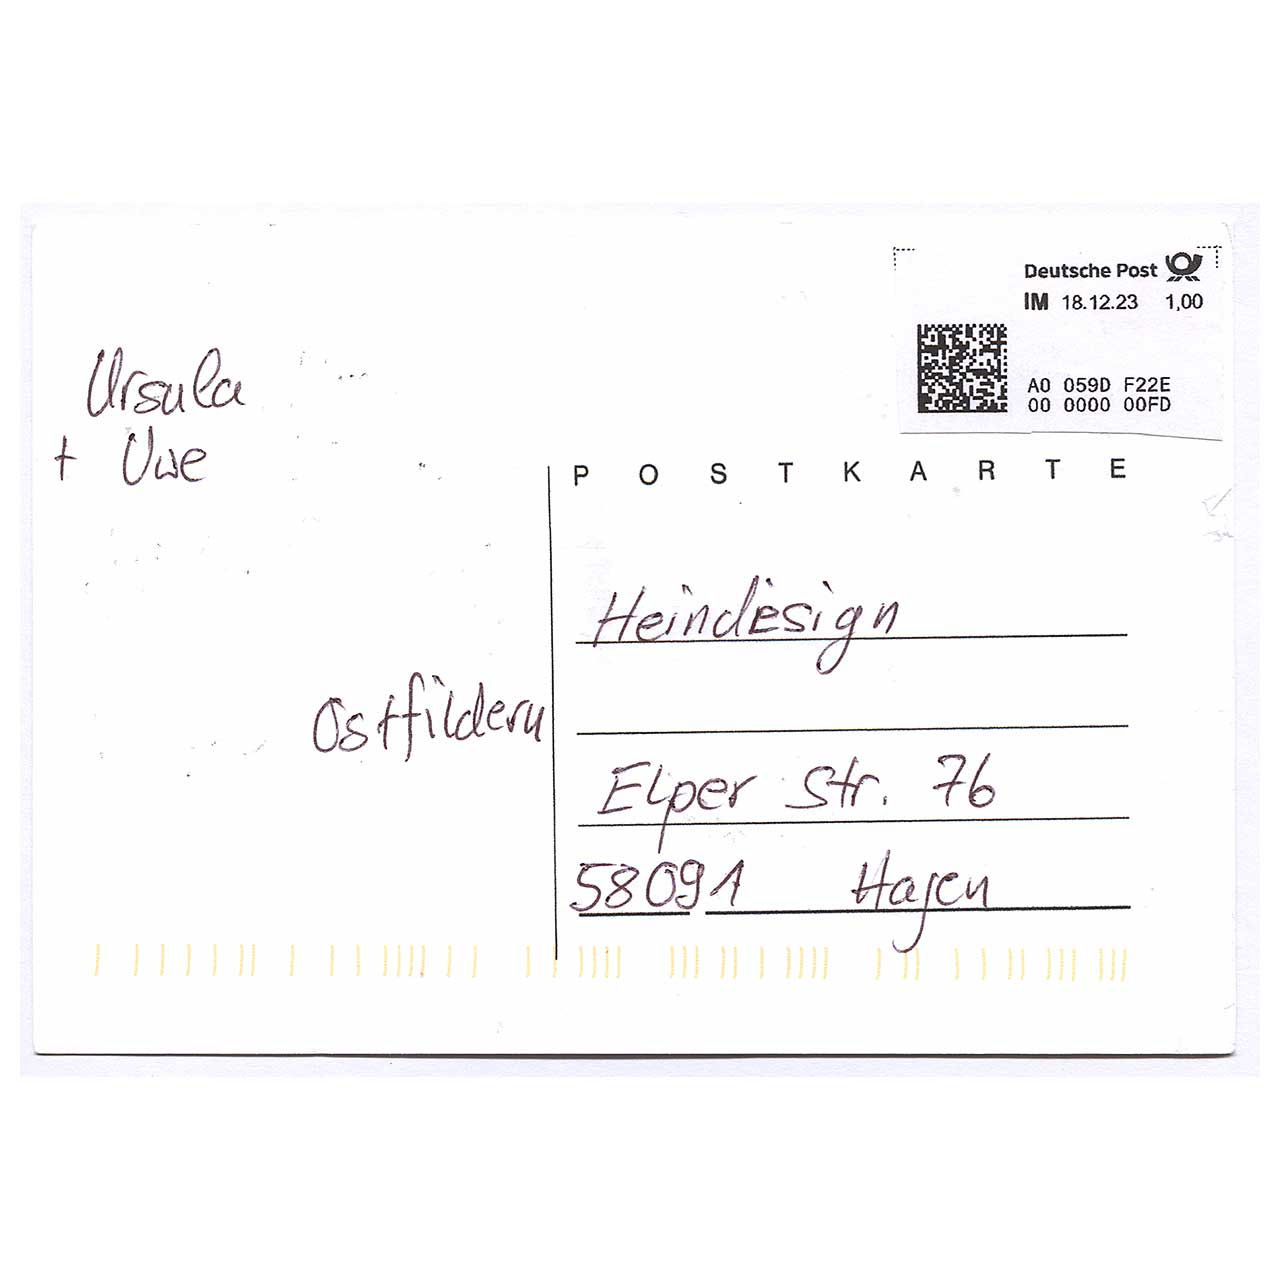 Deutsche Post
IM 18.12.23 1,00
A0 059D F22E
00 0000 00FD
Ursula
+ Uwe
POSTKARTE
Heindesign
Ostfildern
Elper Str. 76
58091 Hagen